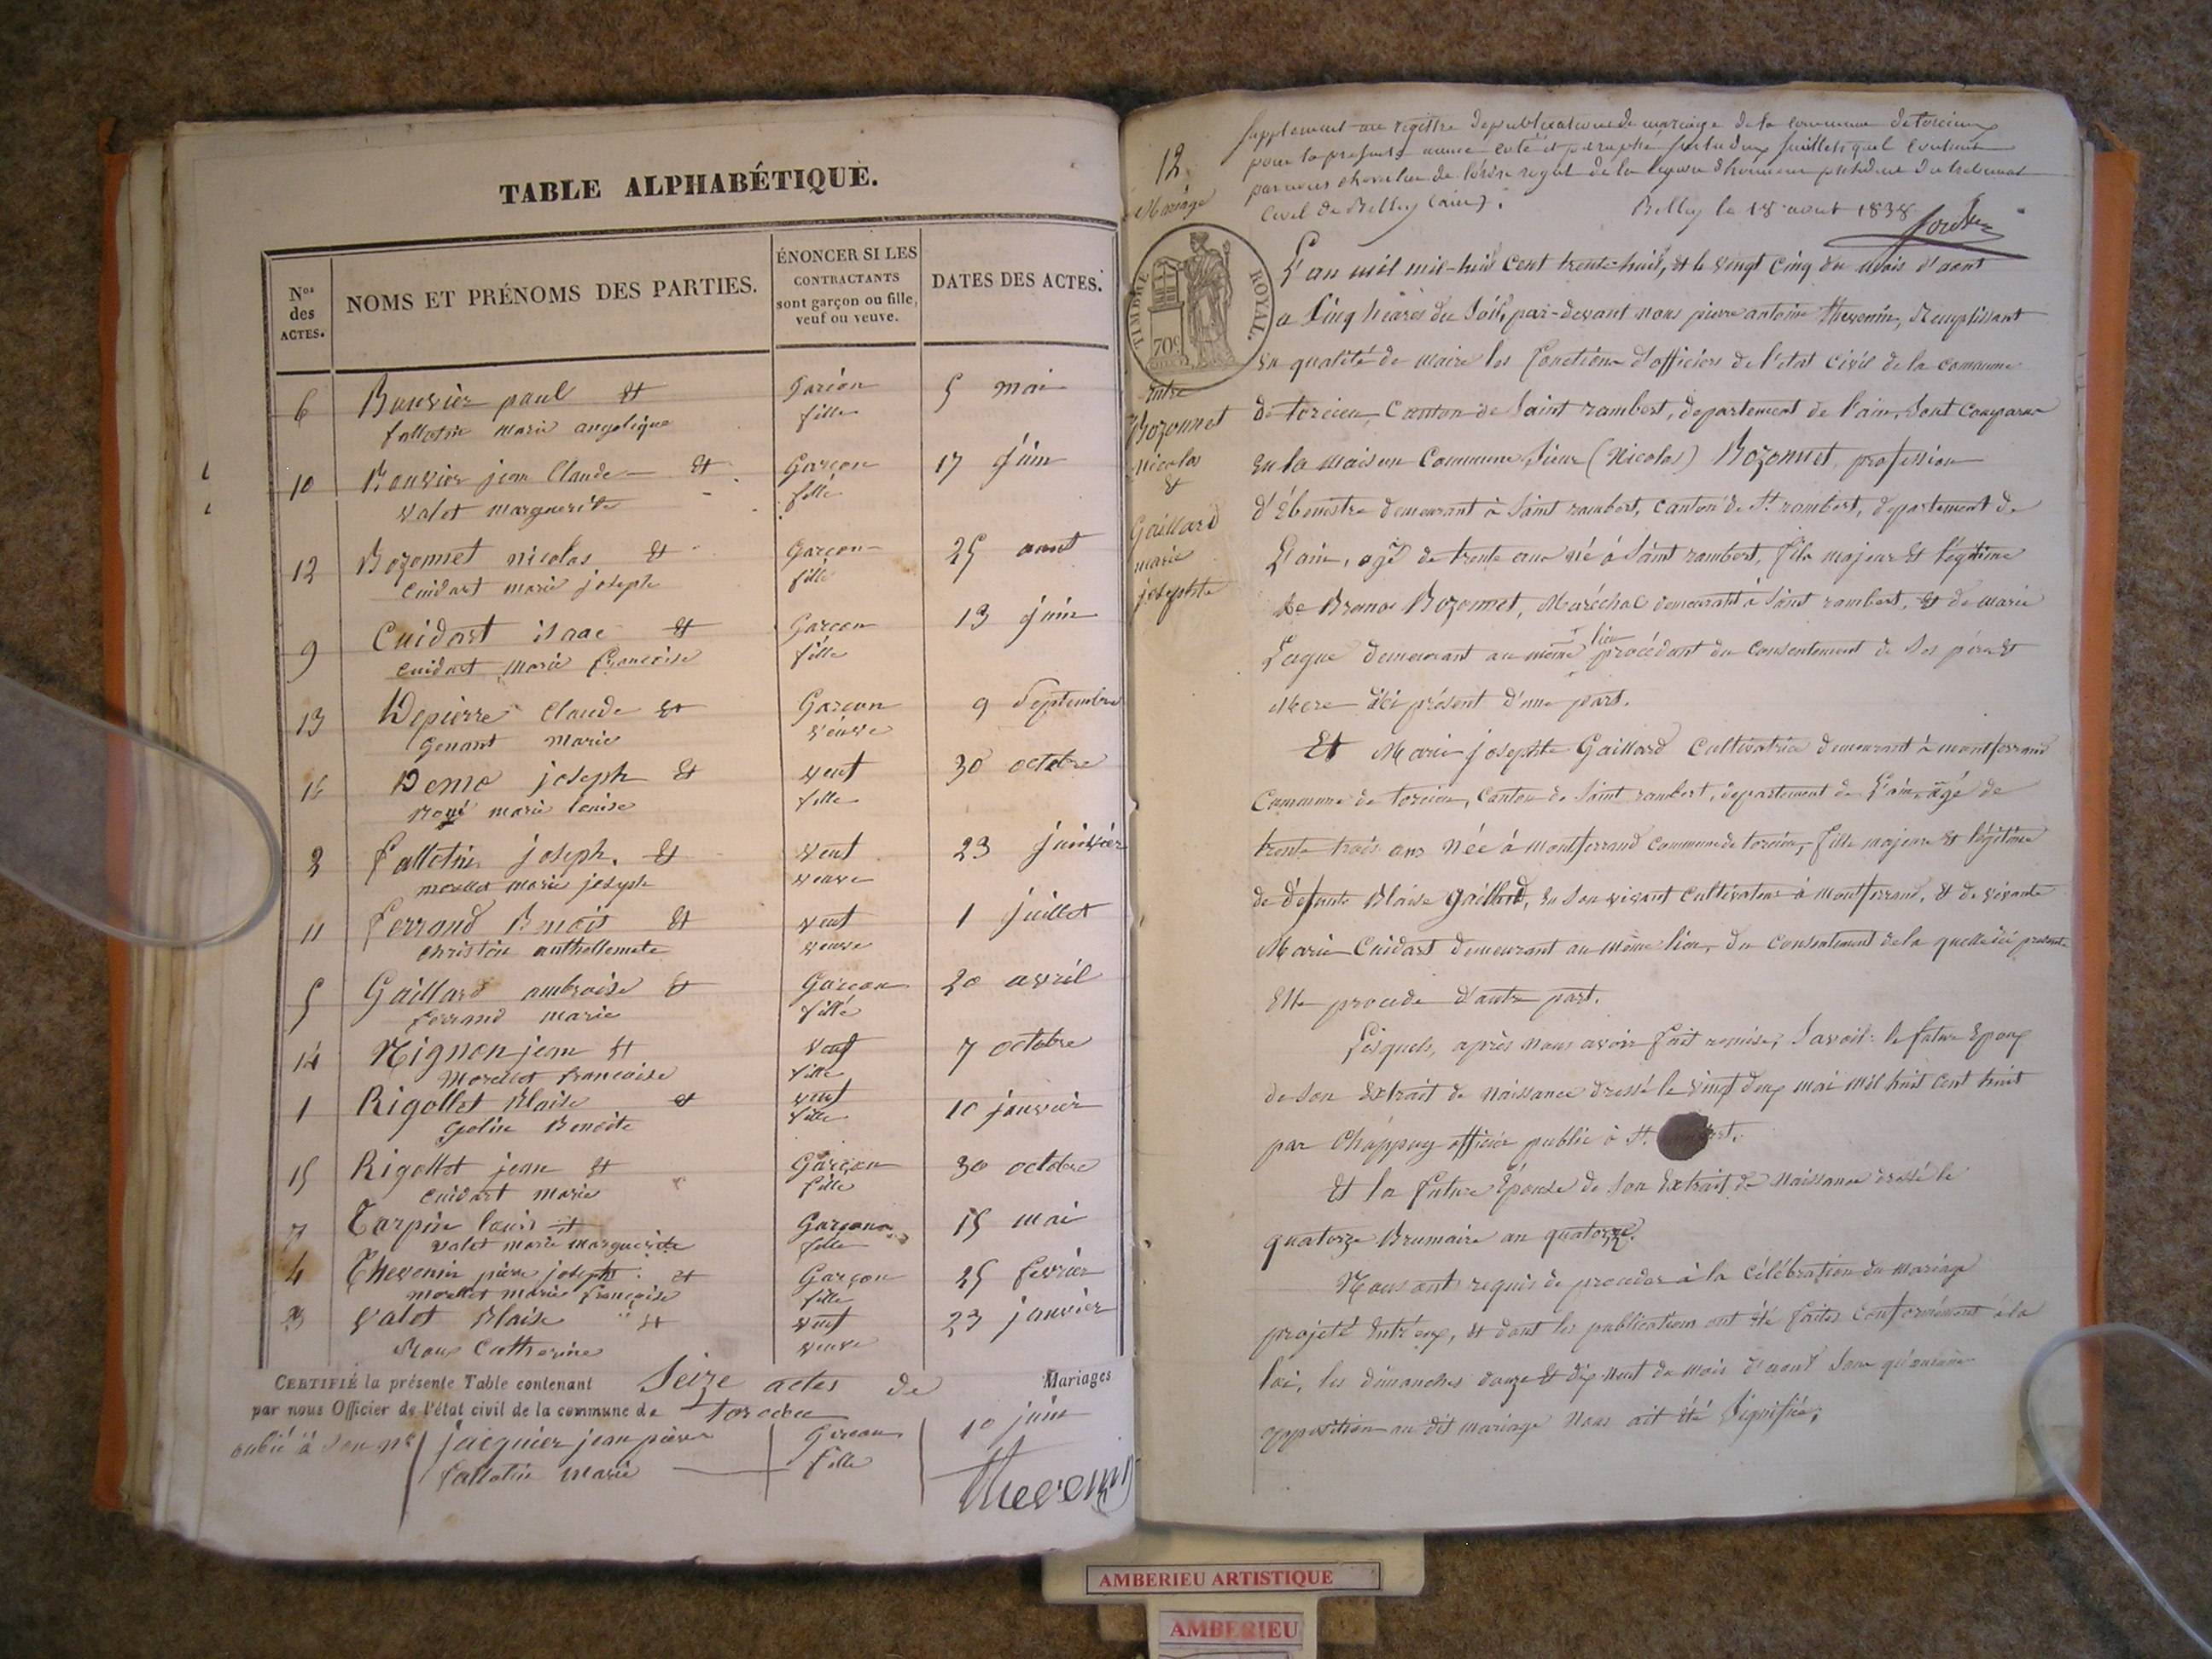 TABLE ALPHABÉTIQUE.
Nos des ACTES.
NOMS ET PRÉNOMS DES PARTIES.
ÉNONCER SI LES CONTRACTANTS sont garçon ou fille, veuf ou veuve.
DATES DES ACTES.
6 Bouvier paul et Garçon 5 mai
fallotin marie angelique fille
10 Bouvier jean Claude et Garçon 17 juin
valet marguerite fille
12 Bozonnet nicolas et Garçon 25 aout
Cuidart marie joseph fille
9 Cuidart isaac et Garçon 13 juin
cuidart Marie françoise fille
13 Depierre Claude et Garçon 9 Septembre
Genant Marie veuve
16 joseph et veuf 30 octobre
marie louise fille
2 fallotin joseph. et veuf 23 janvier
morellet marie joseph veuve
11 ferrand Benoit et veuf 1 juillet
christin anthellemette veuve
5 Gaillard ambroise et Garçon 20 avril
ferrand marie fille
14 Mignon jean et veuf 7 octobre
Morellet francoise fille
1 Rigollet Blaise et veuf 10 janvier
Benoite fille
15 Rigollet jean et Garçon 30 octobre
cuidart marie fille
7 Tarpin louis et Garçon 15 mai
valet marie marguerite fille
4 Thevenin pierre joseph et Garçon 25 fevrier
morellet marie françoise fille
3 valet Blaise et veuf 23 janvier
Roux Catherine veuve
CERTIFIÉ la présente Table contenant Seize actes de Mariages
par nous Officier de l'état civil de la commune de torcieu
oublié à son no jacquier jean pierre Garcon 10 juin
fallotin marie fille
Thevenin
Supplement au registre de publications de mariage de la commune de torcieu
pour la presente année coté et paraphé
par nous chevalier de l'ordre royal de la legion d'honneur président du tribunal
civil de Belley (ain).
Belley le 18 aout 1838
12
Mariage
TIMBRE ROYAL
70c
Entre
Bozonnet
nicolas
&
Gaillard
marie
josephte
L'an mil mil-huit cent trente-huit, et le vingt cinq du mois d'aout
a Cinq heures du Soir, par-devant nous pierre antoine thevenin, Remplissant
en qualité de maire les fonctions d'officiers de l'etat civil de la commune
de torcieu, Canton de Saint rambert, departement de l'ain, Sont Comparus
en la maison Commune Sieur (Nicolas) Bozonnet, profession
d'Ébenistre demeurant à Saint rambert, canton de St rambert, departement de
L'ain, agé de trente ans né à Saint rambert, fils majeur et légitime
de Bozonnet, Maréchal demeurant à Saint rambert, et de marie
demeurant au même lieu procédant du consentement de Ses père et
Mere ici présent d'une part.
Et Marie josephte Gaillard Cultivatrice demeurant à montferrand
Commune de torcieu, Canton de Saint rambert, departement de L'ain, âgé de
trente trois ans Née à montferrand commune de torcieu, fille majeure et légitime
de défunts Blaise Gaillard, en Son vivant Cultivateur à Montferrand, et de vivante
Marie Cuidart demeurant au même lieu, du consentement de la quelle ici presente
Elle procede d'autre part.
Lesquels, après Nous avoir fait remise; Savoir: le future Epoux
de Son Extrait de Naissance dressé le vingt deux mai mil huit cent huit
par Chappuy officier public à St.
Et la future Épouse de Son Extrait de Naissance dressé le
quatorze Brumaire an quatorze.
Nous ont requis de proceder à la célébration du mariage
projeté Entr'eux, et dont les publications ont été faites Conformément à la
loi, les dimanches douze et dix neuf du mois d'aout Sans qu'aucune
opposition au dit mariage Nous ait été Signifiée;
AMBERIEU ARTISTIQUE
AMBERIEU